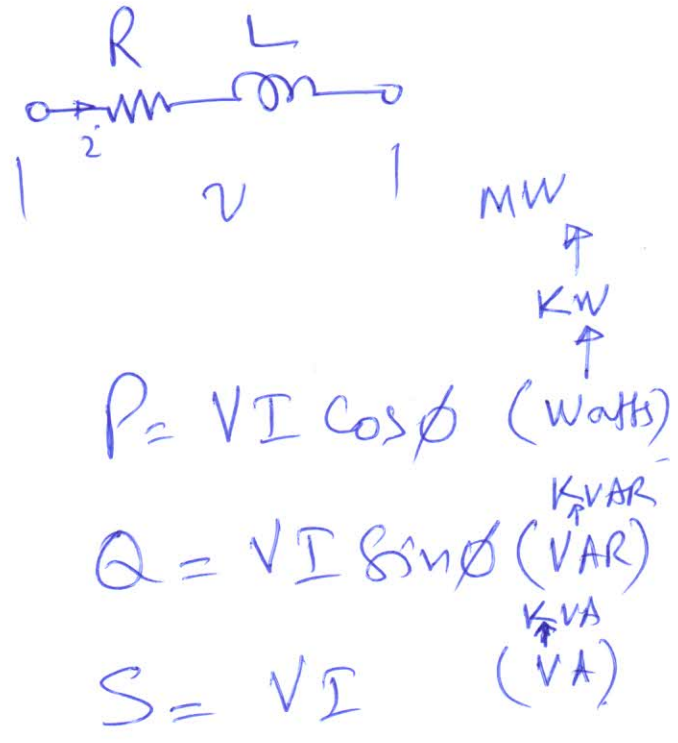 R L
i
v
MW
KW
P = VI Cosø (Watts)
KVAR
Q = VI Sinø (VAR)
KVA
S = VI (VA)